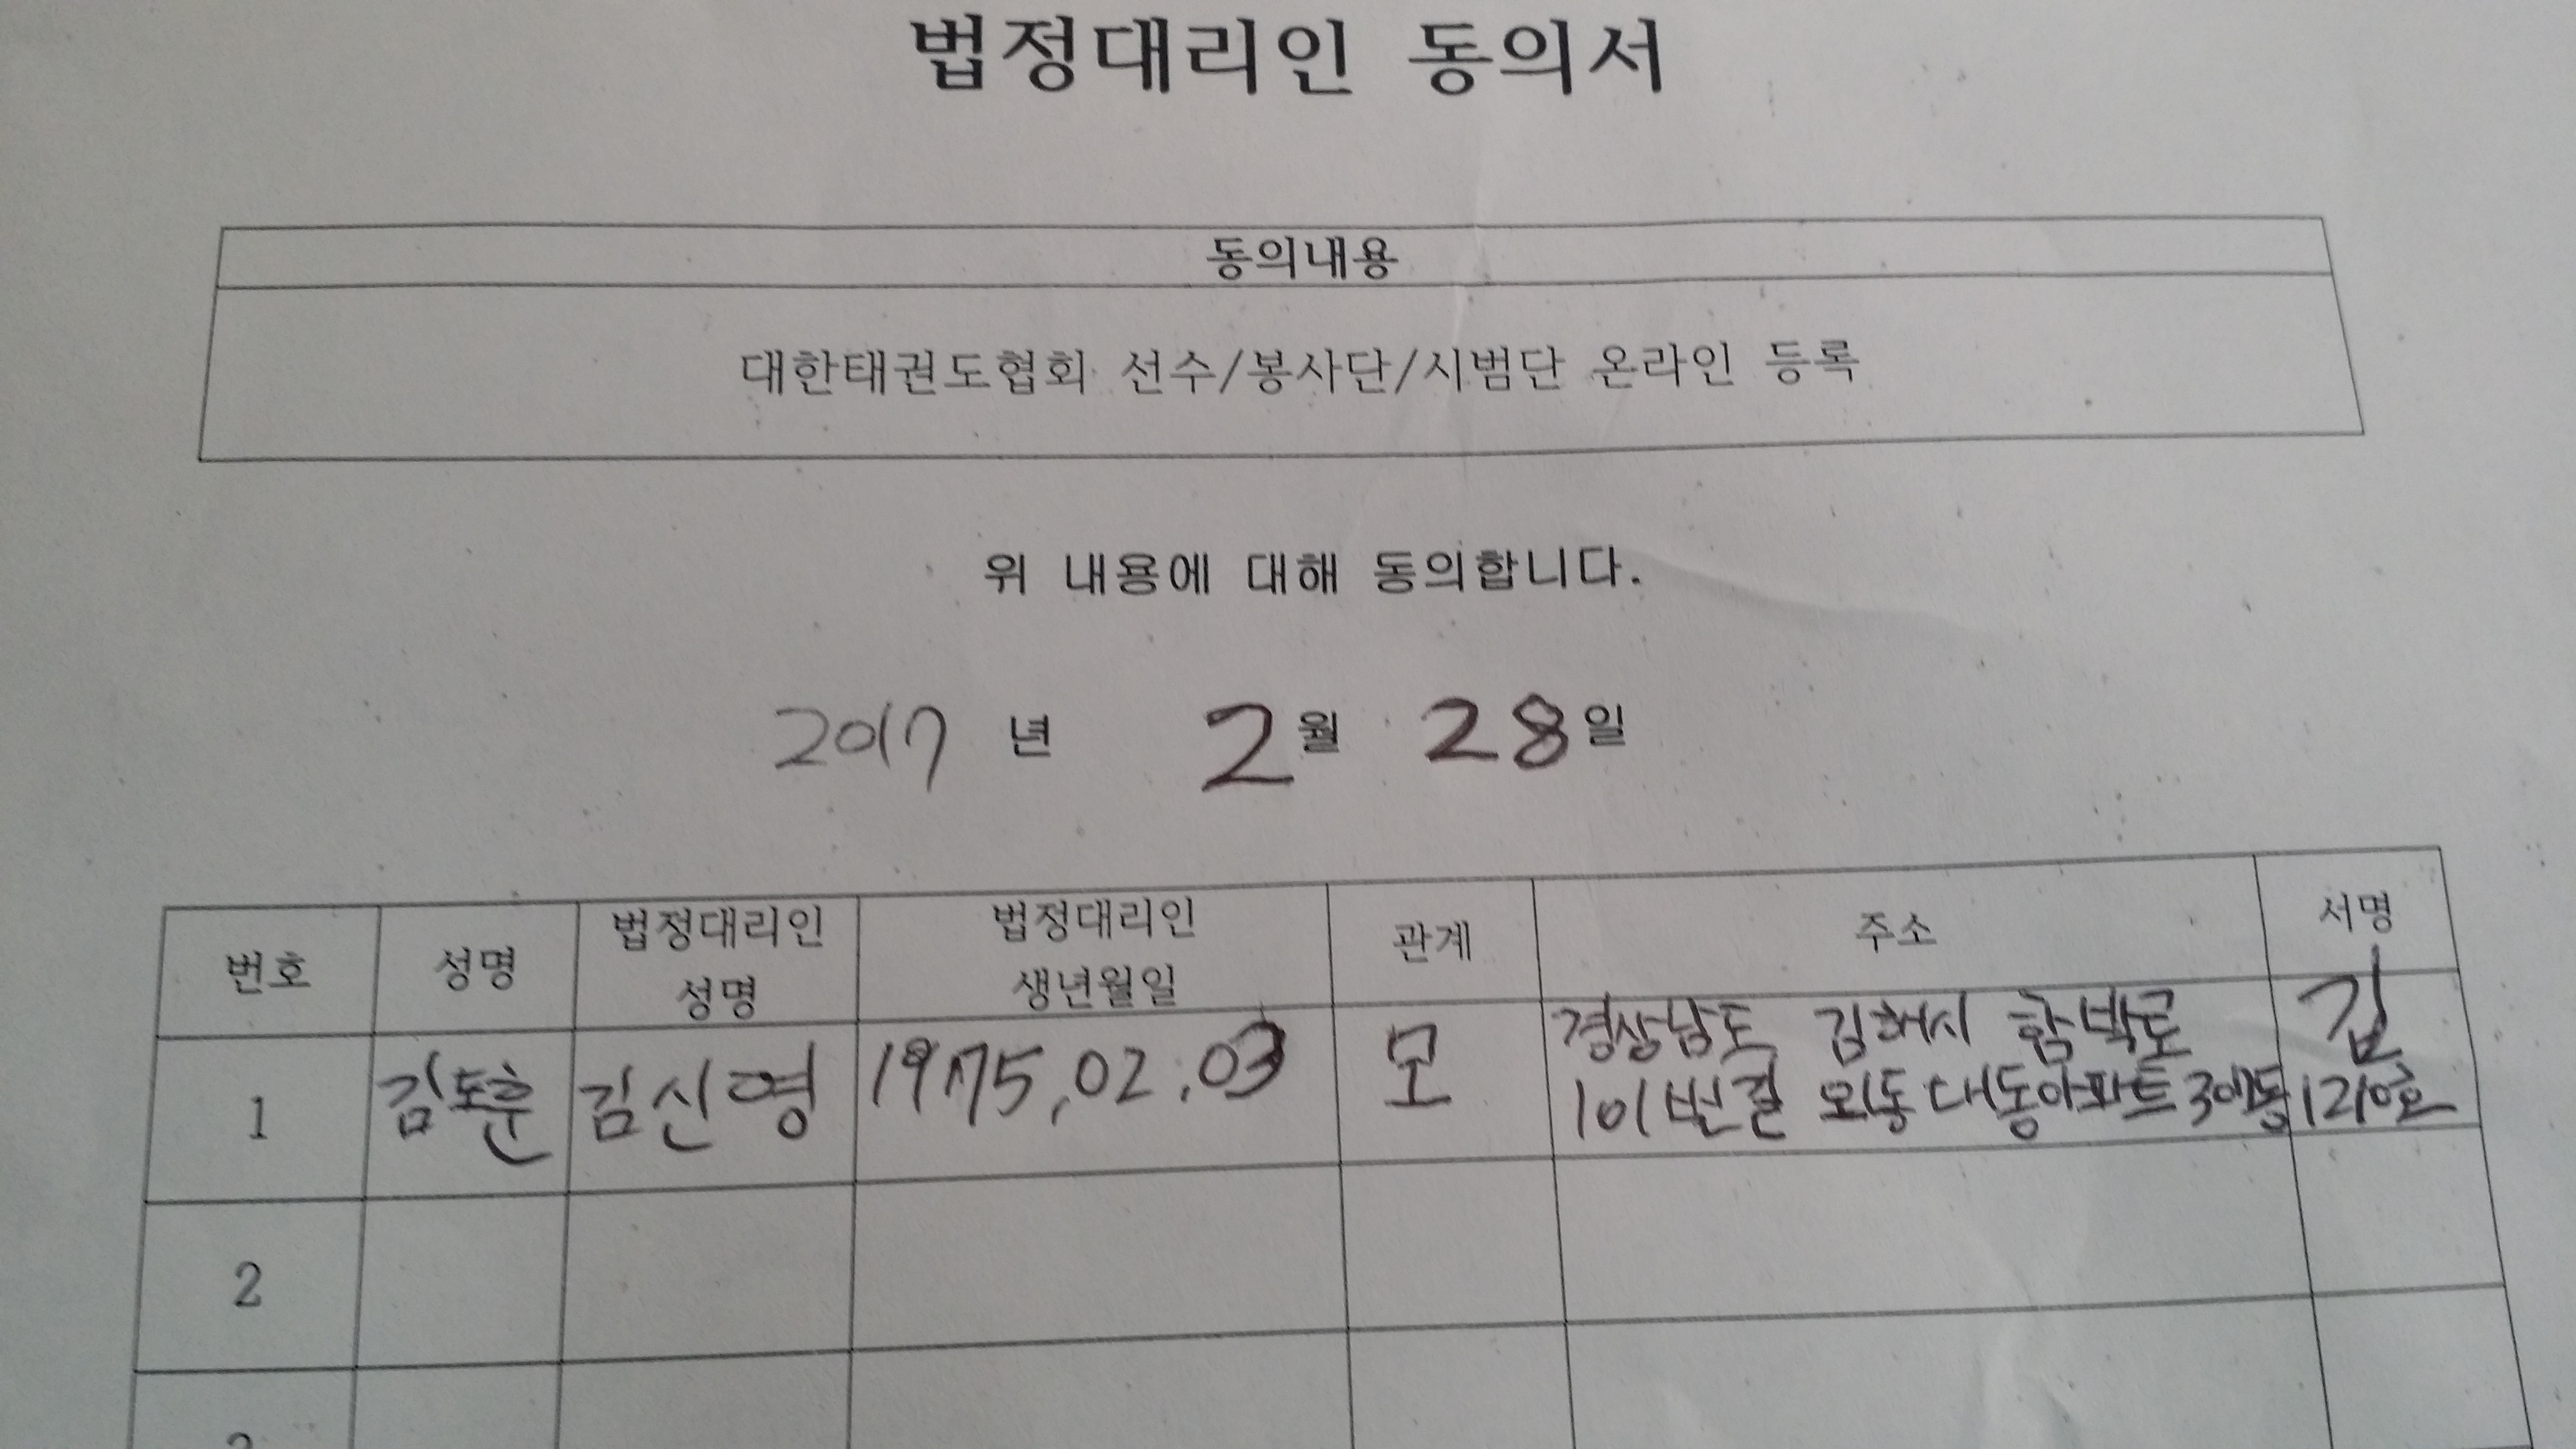 법정대리인 동의서
동의내용
대한태권도협회 선수/봉사단/시범단 온라인 등록
위 내용에 대해 동의합니다.
2017 년 2월 28일
번호 성명 법정대리인 성명 법정대리인 생년월일 관계 주소 서명
1 김동훈 김신영 1975,02,03 모 경상남도 김해시 함박로 김
101번길 외동 대동아파트 1210호
2